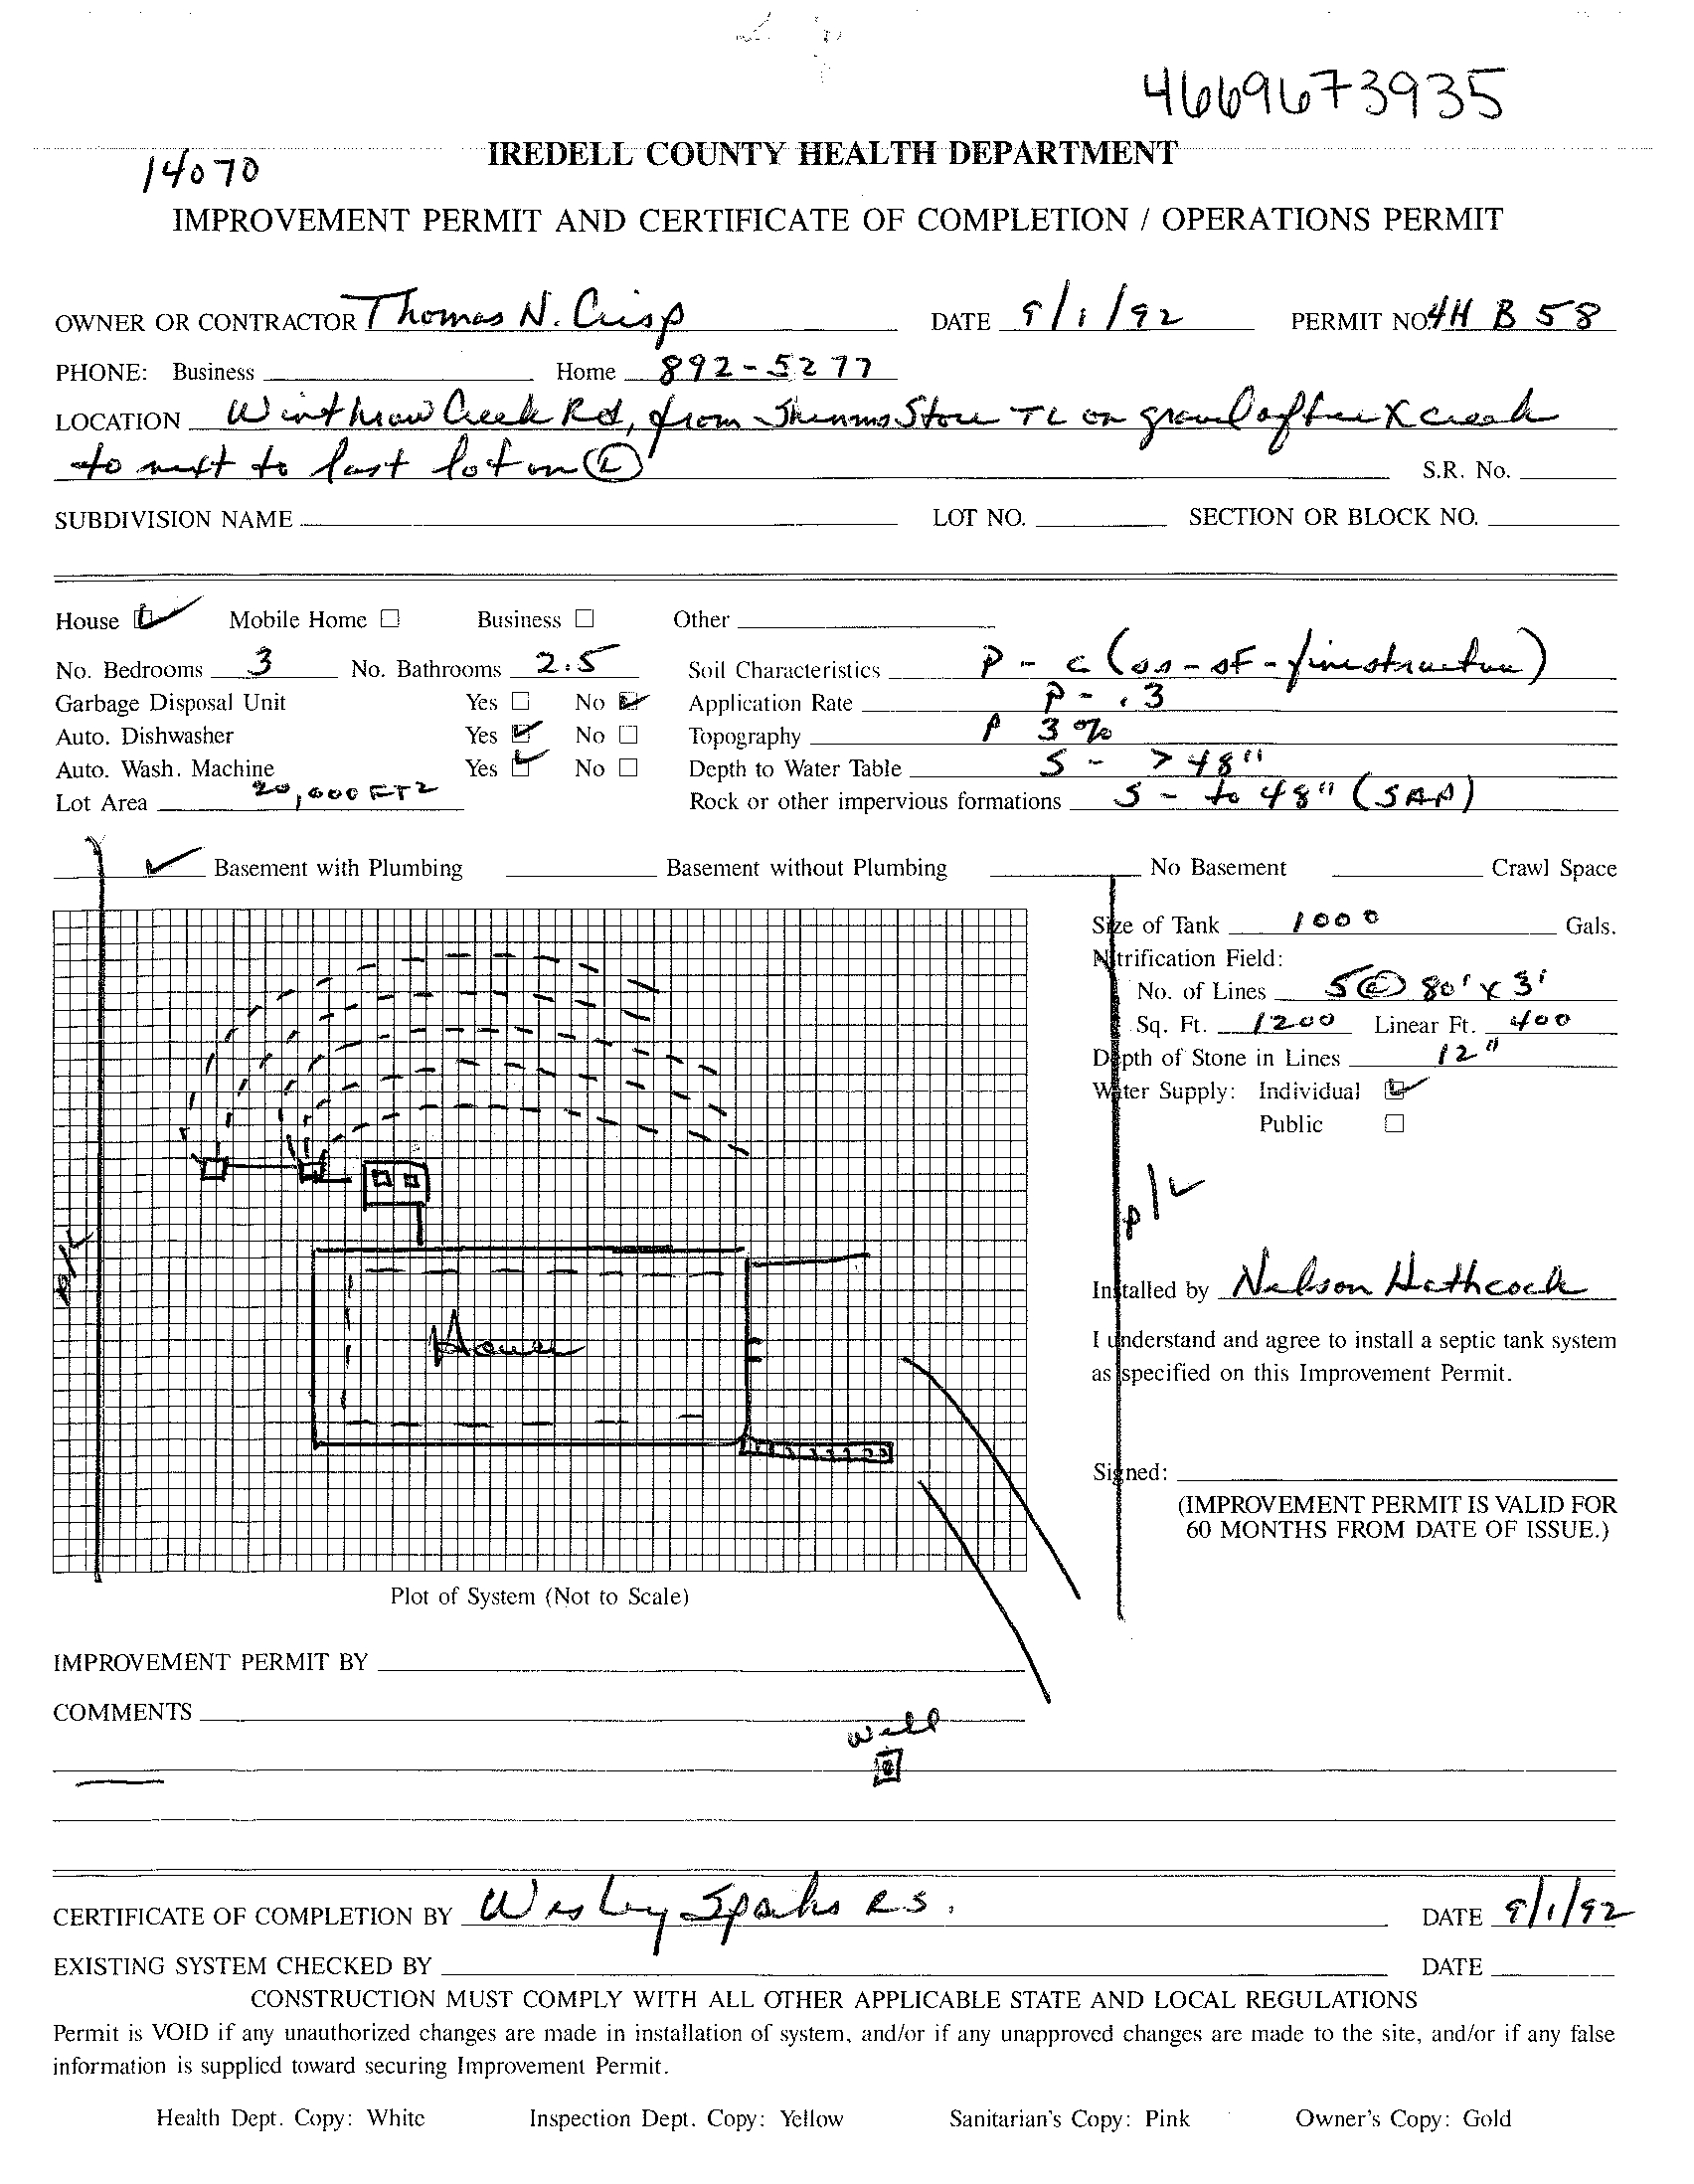 4669673935
14070
IREDELL COUNTY HEALTH DEPARTMENT
IMPROVEMENT PERMIT AND CERTIFICATE OF COMPLETION / OPERATIONS PERMIT
OWNER OR CONTRACTOR Thomas N. Crisp DATE 9/1/92 PERMIT NO. 4H B 58
PHONE: Business Home 892-5277
LOCATION Winthrow Creek Rd, from Store TL on gravel after X creek
to next to last lot on L S.R. No.
SUBDIVISION NAME LOT NO. SECTION OR BLOCK NO.
House Mobile Home Business Other
No. Bedrooms 3 No. Bathrooms 2.5 Soil Characteristics P - c (
Garbage Disposal Unit Yes No Application Rate P - .3
Auto. Dishwasher Yes No Topography P 3%
Auto. Wash. Machine Yes No Depth to Water Table S - > 48"
Lot Area 20,000 FT2 Rock or other impervious formations S - to 48" (SAP)
Basement with Plumbing Basement without Plumbing No Basement Crawl Space
Size of Tank 1000 Gals.
Nitrification Field:
No. of Lines 5 @ 80' x 3'
Sq. Ft. 1200 Linear Ft. 400
Depth of Stone in Lines 12"
Water Supply: Individual
Public
P/L
P/L
House
Installed by Nelson Hathcock
I understand and agree to install a septic tank system
as specified on this Improvement Permit.
Signed:
(IMPROVEMENT PERMIT IS VALID FOR
60 MONTHS FROM DATE OF ISSUE.)
Plot of System (Not to Scale)
IMPROVEMENT PERMIT BY
COMMENTS
well
CERTIFICATE OF COMPLETION BY Wesley Sparks R.S. DATE 9/1/92
EXISTING SYSTEM CHECKED BY DATE
CONSTRUCTION MUST COMPLY WITH ALL OTHER APPLICABLE STATE AND LOCAL REGULATIONS
Permit is VOID if any unauthorized changes are made in installation of system, and/or if any unapproved changes are made to the site, and/or if any false
information is supplied toward securing Improvement Permit.
Health Dept. Copy: White Inspection Dept. Copy: Yellow Sanitarian's Copy: Pink Owner's Copy: Gold